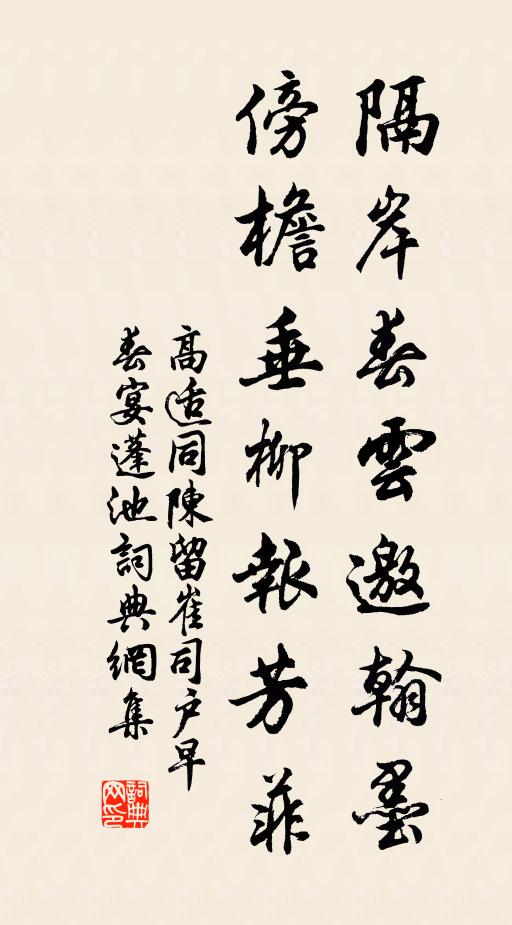 隔岸春雲邀翰墨
傍檐垂柳報芳菲
高适同陳留崔司户早
春宴蓬池詞典網集
詞典网印